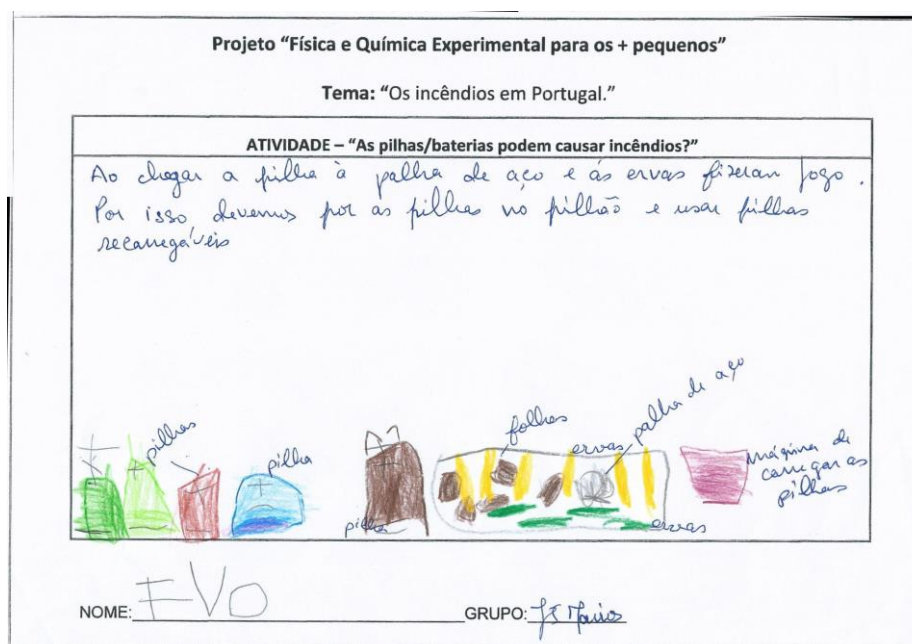 Projeto “Física e Química Experimental para os + pequenos”
Tema: “Os incêndios em Portugal.”
ATIVIDADE – “As pilhas/baterias podem causar incêndios?”
Ao chegar a pilha à palha de aço e ás ervas fizeram fogo.
Por isso devemos por as pilhas no pilhão e usar pilhas
recarregáveis
pilhas
pilha
pilha
folhas
ervas
palha de aço
ervas
máquina de
carregar as
pilhas
NOME: IVO
GRUPO: